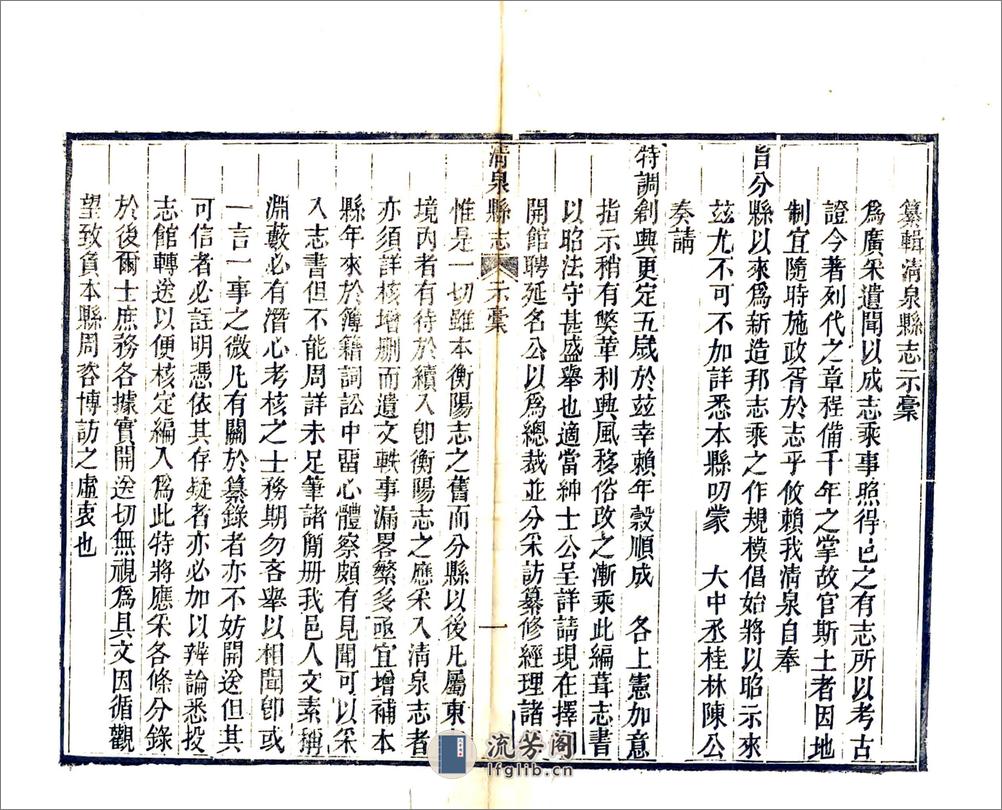 纂輯清泉縣志示稾
爲廣采遺聞以成志乘事照得邑之有志所以考古
證今著列代之章程備千年之掌故官斯土者因地
制宜隨時施政胥於志乎攸賴我清泉自奉
旨分縣以來爲新造邦志乘之作規模倡始將以昭示來
茲尤不可不加詳悉本縣叨蒙 大中丞桂林陳公
奏請
特調創興更定五歲於茲幸賴年穀順成 各上憲加意
指示稍有獘革利興風移俗改之漸乘此編葺志書
以昭法守甚盛舉也適當紳士公呈詳請現在擇
開館聘延名公以爲總裁並分采訪纂修經理諸
清泉縣志 示稾 一
惟是一切雖本衡陽志之舊而分縣以後凡屬東
境內者有待於續入卽衡陽志之應采入清泉志者
亦須詳核增刪而遺文軼事漏畧繁多亟宜增補本
縣年來於簿籍詞訟中畱心體察頗有見聞可以采
入志書但不能周詳未足筆諸簡册我邑人文素稱
淵藪必有潛心考核之士務期勿吝舉以相聞卽或
一言一事之微凡有關於纂錄者亦不妨開送但其
可信者必註明憑依其存疑者亦必加以辨論悉投
志館轉送以便核定編入爲此特將應采各條分錄
於後爾士庶務各據實開送切無視爲具文因循觀
望致負本縣周咨博訪之虛衷也
流芳阁
lfglib.cn